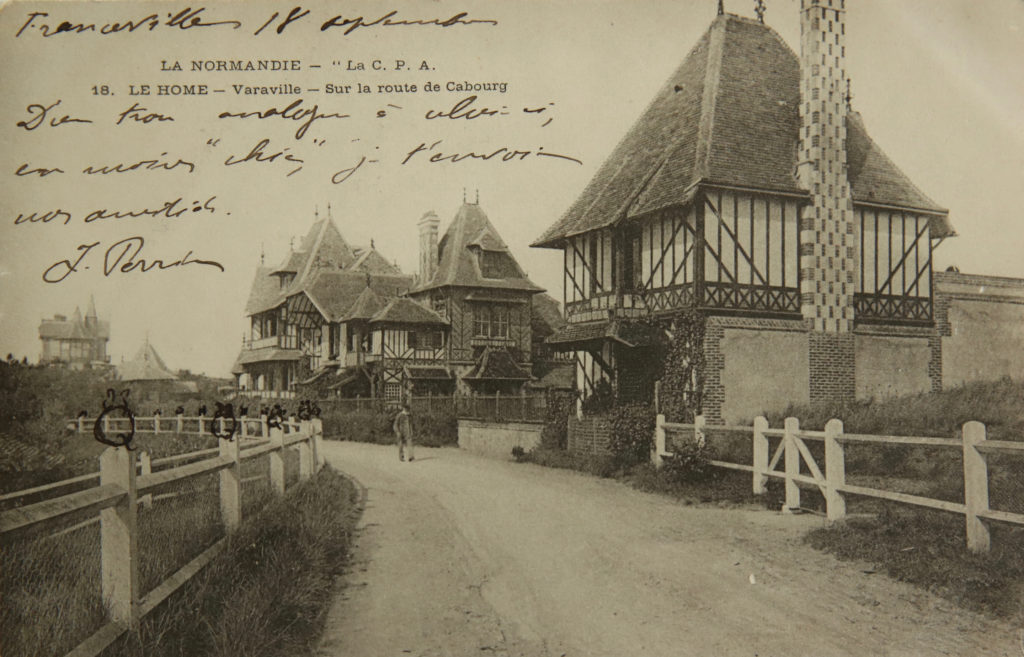 Franceville 18 septembre
LA NORMANDIE – "La C. P. A.
18. LE HOME – Varaville – Sur la route de Cabourg
D'un trou analogue à celui-ci,
en moins "chic", je t'envoie
nos amitiés.
J. Perrin